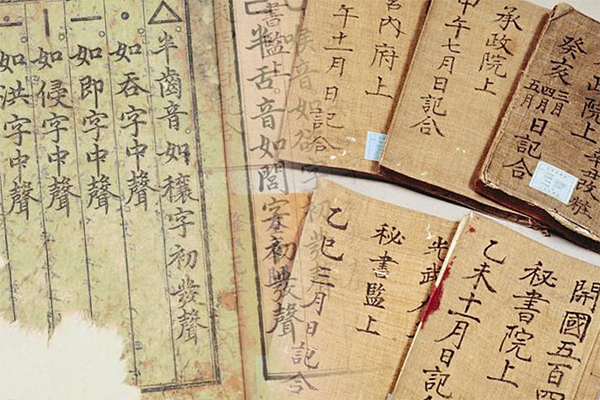 政院上 辛丑改粧
癸亥三四五月日記合
承政院上
甲午七月日記合
宮內府上
午十一月日記合
開國五百四
秘書院上
乙未十一月日記合
光武
秘書監上
乙巳三月日記合
半舌音如閭字初發聲
ㅿ。半齒音。如穰字初發聲
ㆍ。如呑字中聲
ㅡ。如即字中聲
ㅣ。如侵字中聲
如洪字中聲